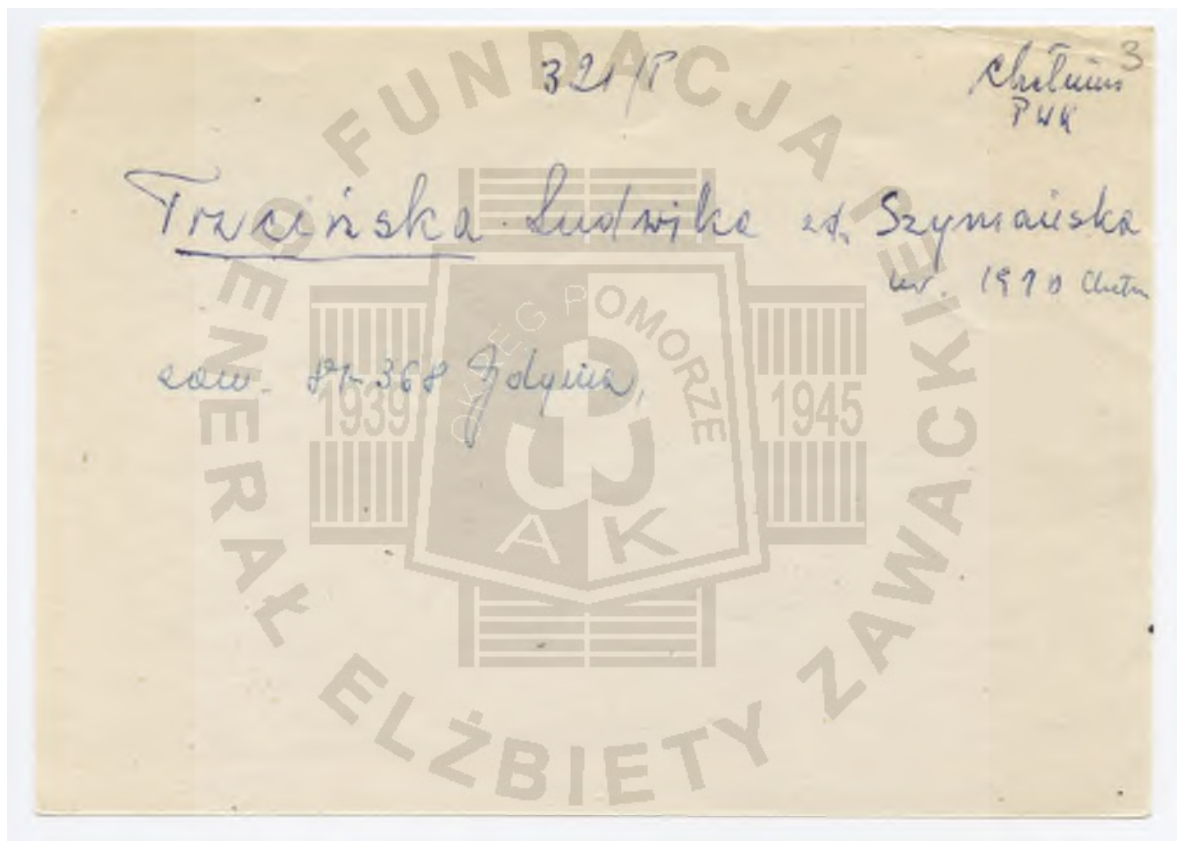 321/P
3
Chełmno
PWK
Trzcińska Ludwika zd. Szymańska
ur. 1910 Chełm
zam. 81-368 Gdynia,
FUNDACJA
GENERAŁ ELŻBIETY ZAWACKIEJ
OKRĘG POMORZE
1939
1945
AK